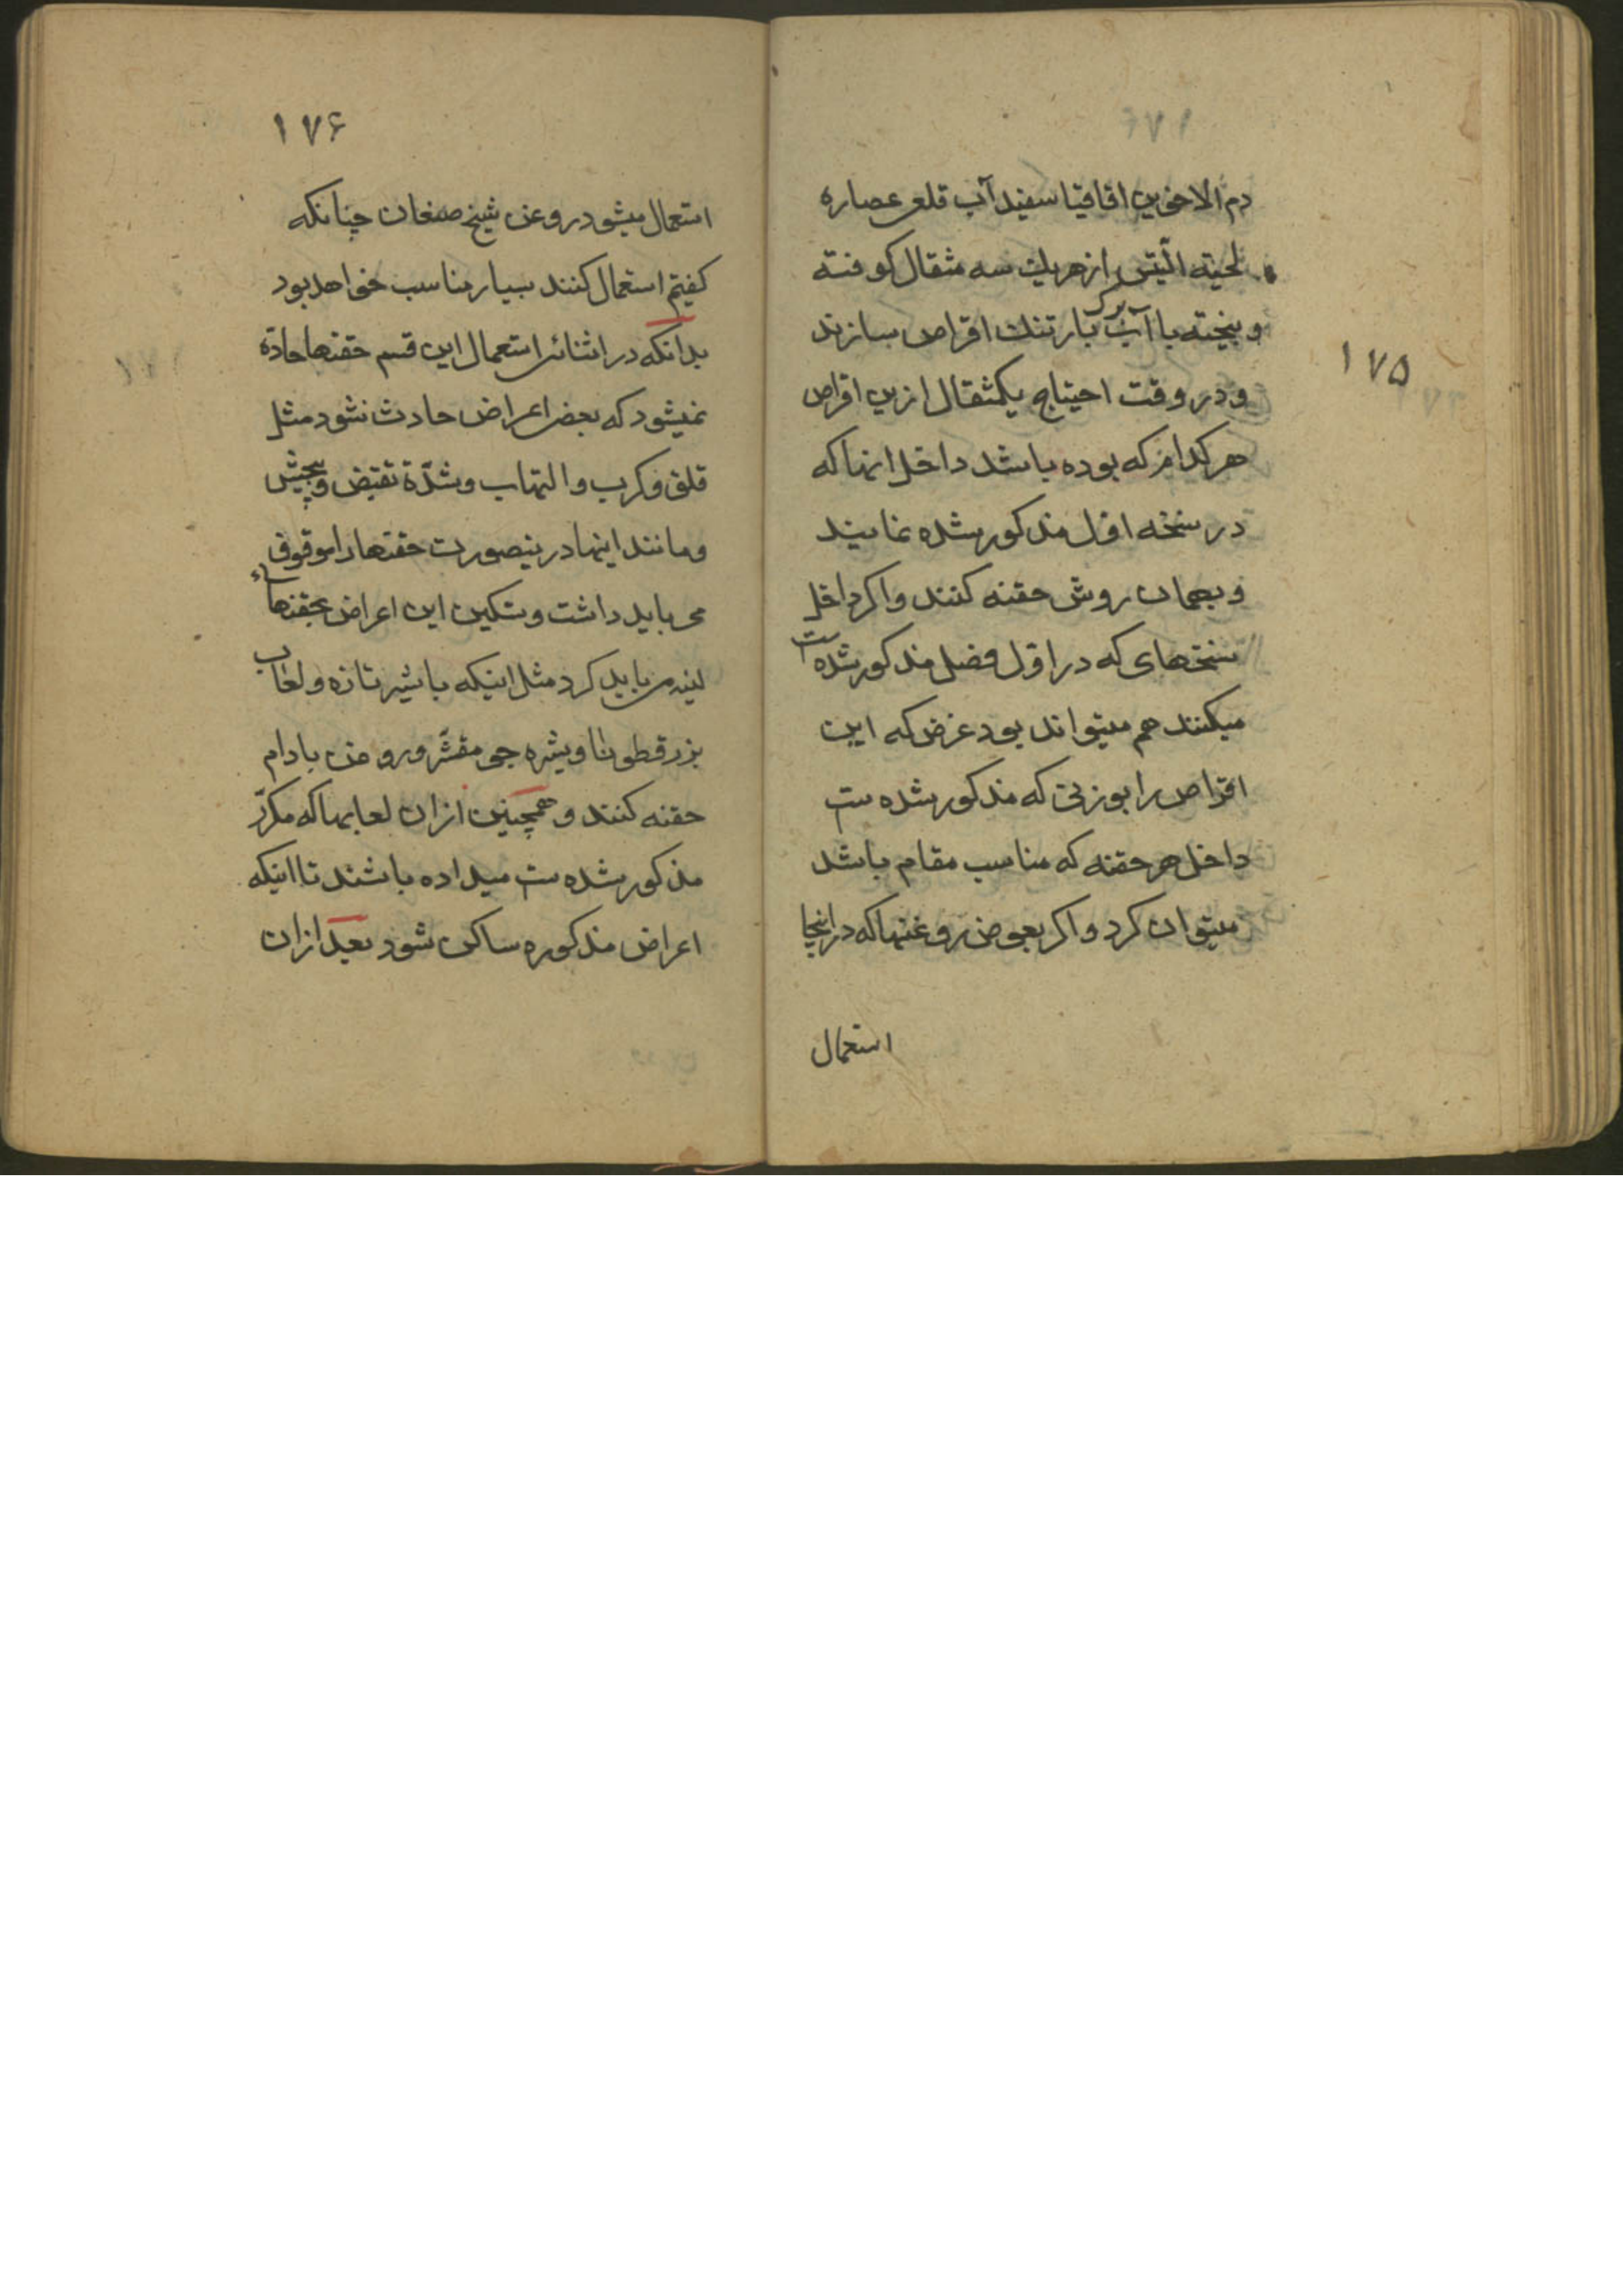 دم الاخوین اقاقیا سفیدآب قلعی عصاره
لحیته التیس ازهریك سه مثقال كوفته
و بیخته با آب برك بارتنك اقراص سازند
و در وقت احتیاج یكمثقال ازین اقراص
هر كدام كه بوده باشد داخل اینها كه
در نسخه اول مذكور شده نمایند
و بهمان روش حقنه كنند و اكر داخل
نسختهای كه در اول فصل مذكور شده ست
میكنند هم میتواند بود غرض كه این
اقراص را بوزنی كه مذكور شده ست
داخل هر حقنه كه مناسب مقام باشد
میتوان كرد و اكر بعوض روغنها كه در اینجا
استعمال
۱۷۵
۱۷۶
استعمال میشود روغن شیخ صنعان چنانكه
كفتم استعمال كنند بسیار مناسب خواهد بود
بدانكه در اثنائی استعمال این قسم حقنها حادّه
نمیشود كه بعضی اعراض حادث نشود مثل
قلق و كرب و التهاب و شدّة تقبض و پیچش
و مانند اینها درینصورت حقنها را موقوف
می باید داشت و تسكین این اعراض بحقنهاء
لینه می باید كرد مثل اینكه با شیر تازه و لعاب
بزرقطونا و شیره جو مقشّر و روغن بادام
حقنه كنند و همچنین ازان لعابها كه مكرّر
مذكور شده ست میداده باشند تا اینكه
اعراض مذكوره ساكن شود بعد ازان